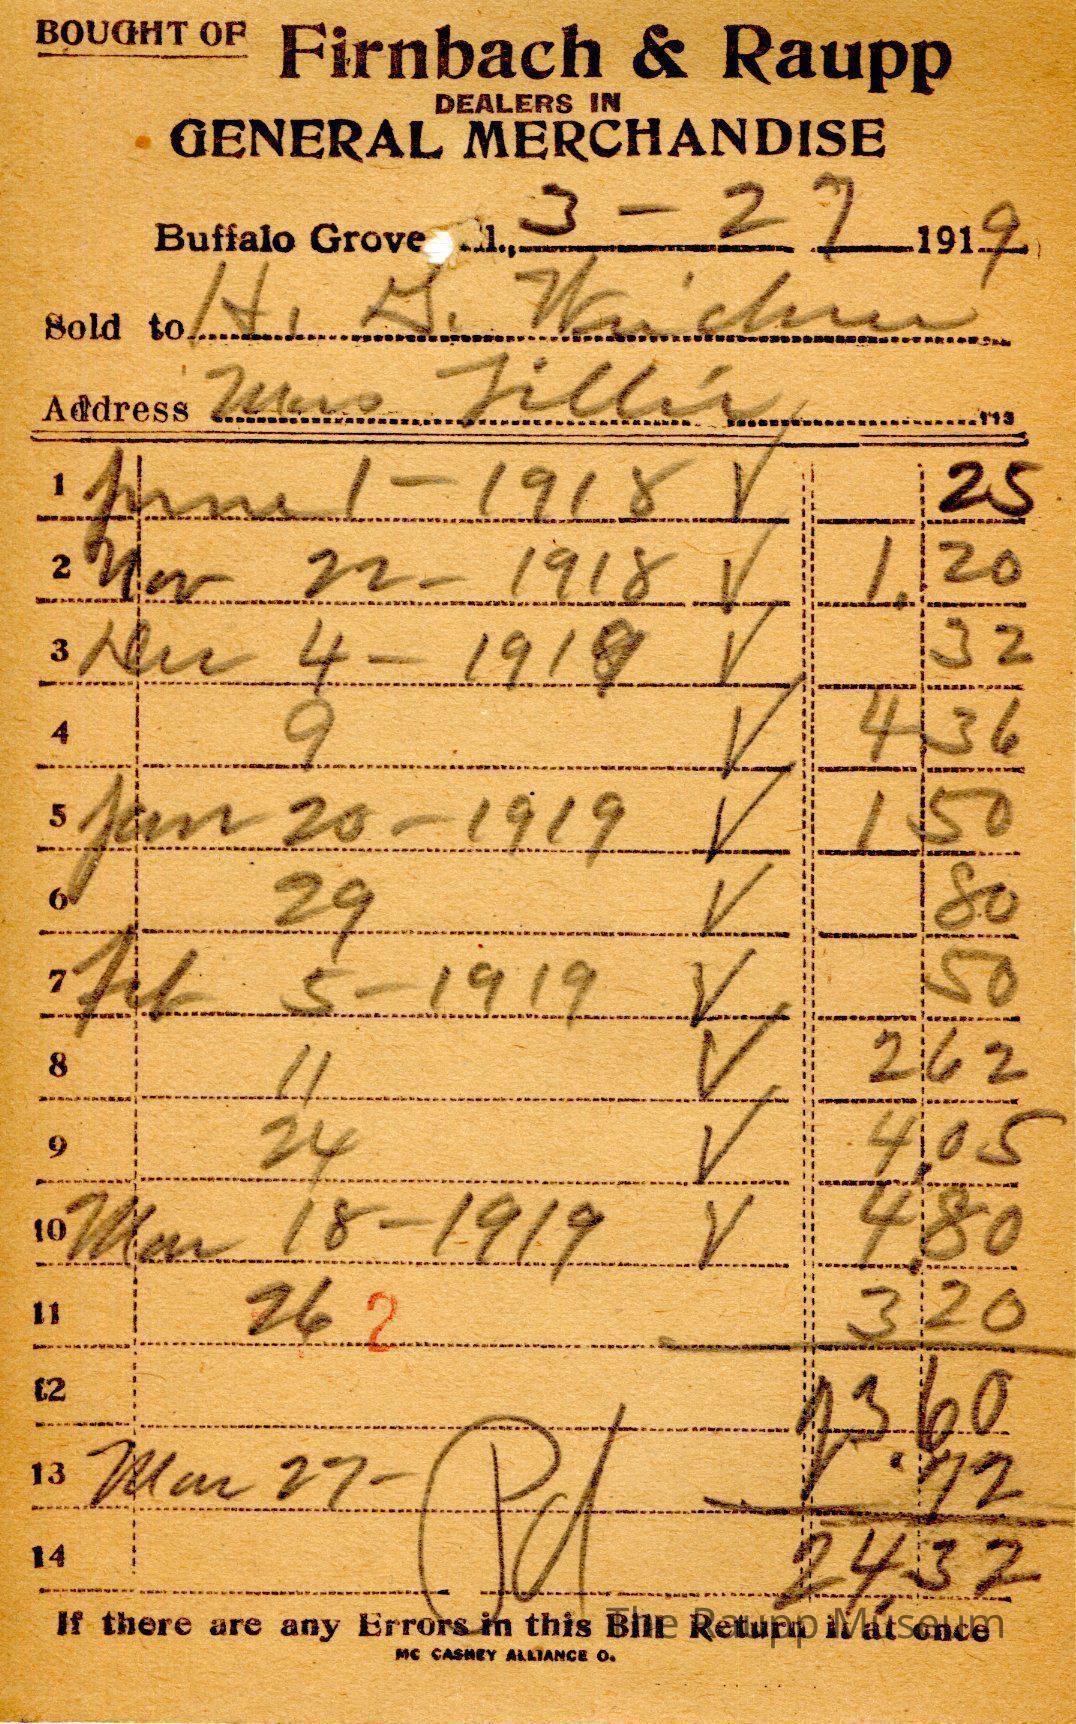 BOUGHT OF Firnbach & Raupp
DEALERS IN
GENERAL MERCHANDISE
Buffalo Grove, Ill., 3 - 27 1919
Sold to H. G. Weidner
Address Mrs Tillie
113
1 June 1 - 1918 √ 25
2 Nov 22 - 1918 √ 1.20
3 Dec 4 - 1918 √ 32
4 9 √ 4 36
5 Jan 20 - 1919 √ 1 50
6 29 √ 80
7 Feb 5 - 1919 √ 50
8 11 √ 2 62
9 24 √ 4.05
10 Mar 18 - 1919 √ 4.80
11 26 2 3 20
12 23 60
13 Mar 27 - .72
14 Pd 24.32
If there are any Errors in this Bill Return it at once
The Raupp Museum
MC CASKEY ALLIANCE O.